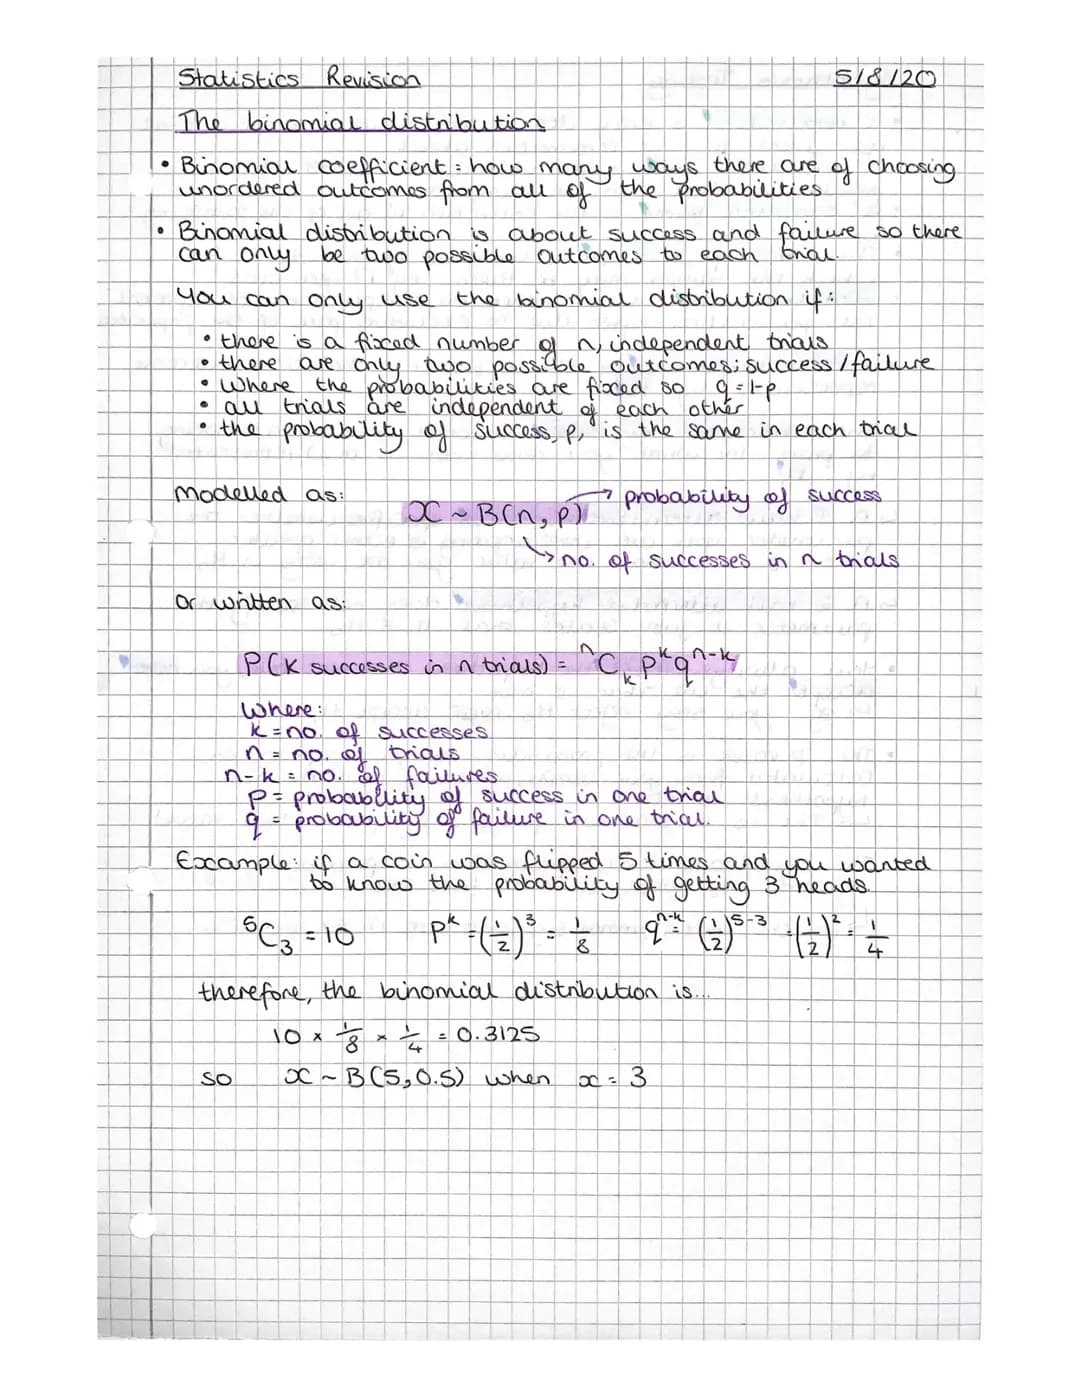 Statistics Revision 5/8/20
The binomial distribution
• Binomial coefficient: how many ways there are of choosing
unordered outcomes from all of the probabilities
• Binomial distribution is about success and failure so there
can only be two possible outcomes to each trial.
You can only use the binomial distribution if:
• there is a fixed number of n, independent trials
• there are only two possible outcomes; success / failure
• Where the probabilities are fixed so q = 1-p
• all trials are independent of each other
• the probability of success, p, is the same in each trial
Modelled as:
→ probability of success
X ~ B(n, p)
↳ no. of successes in n trials
Or written as:
P(K successes in n trials) = ⁿCₖ pᵏqⁿ⁻ᵏ
Where:
K = no. of successes
n = no. of trials
n-k = no. of failures
p = probability of success in one trial
q = probability of failure in one trial.
Example: if a coin was flipped 5 times and you wanted
to know the probability of getting 3 heads.
⁵C₃ = 10 pᵏ = (1/2)³ = 1/8 qⁿ⁻ᵏ = (1/2)⁵⁻³ = (1/2)² = 1/4
therefore, the binomial distribution is...
10 × 1/8 × 1/4 = 0.3125
so X ~ B(5, 0.5) when x = 3